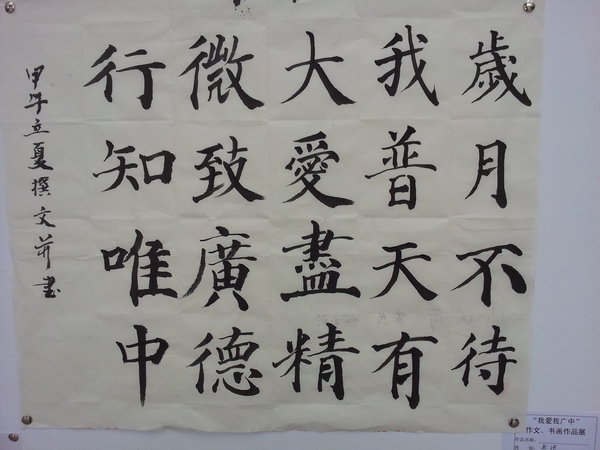 歲月不待
我普天有
大愛盡精
微致廣德
行知唯中
甲午立夏撰文并書
“我爱我广中”
作文、书画作品展
作品名称: